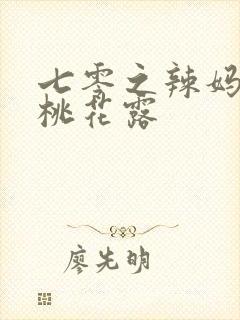 七零之辣妈
桃花露
廖先明